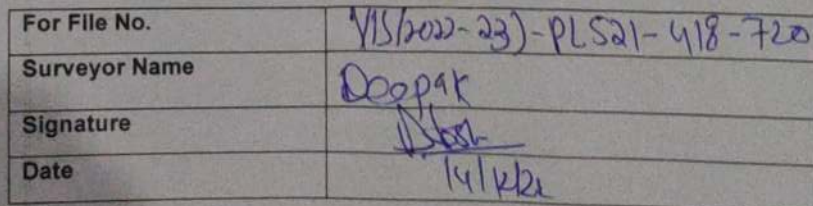 For File No. VIS(2022-23)-PL521-418-720
Surveyor Name Deepak
Signature
Date 14/12/22